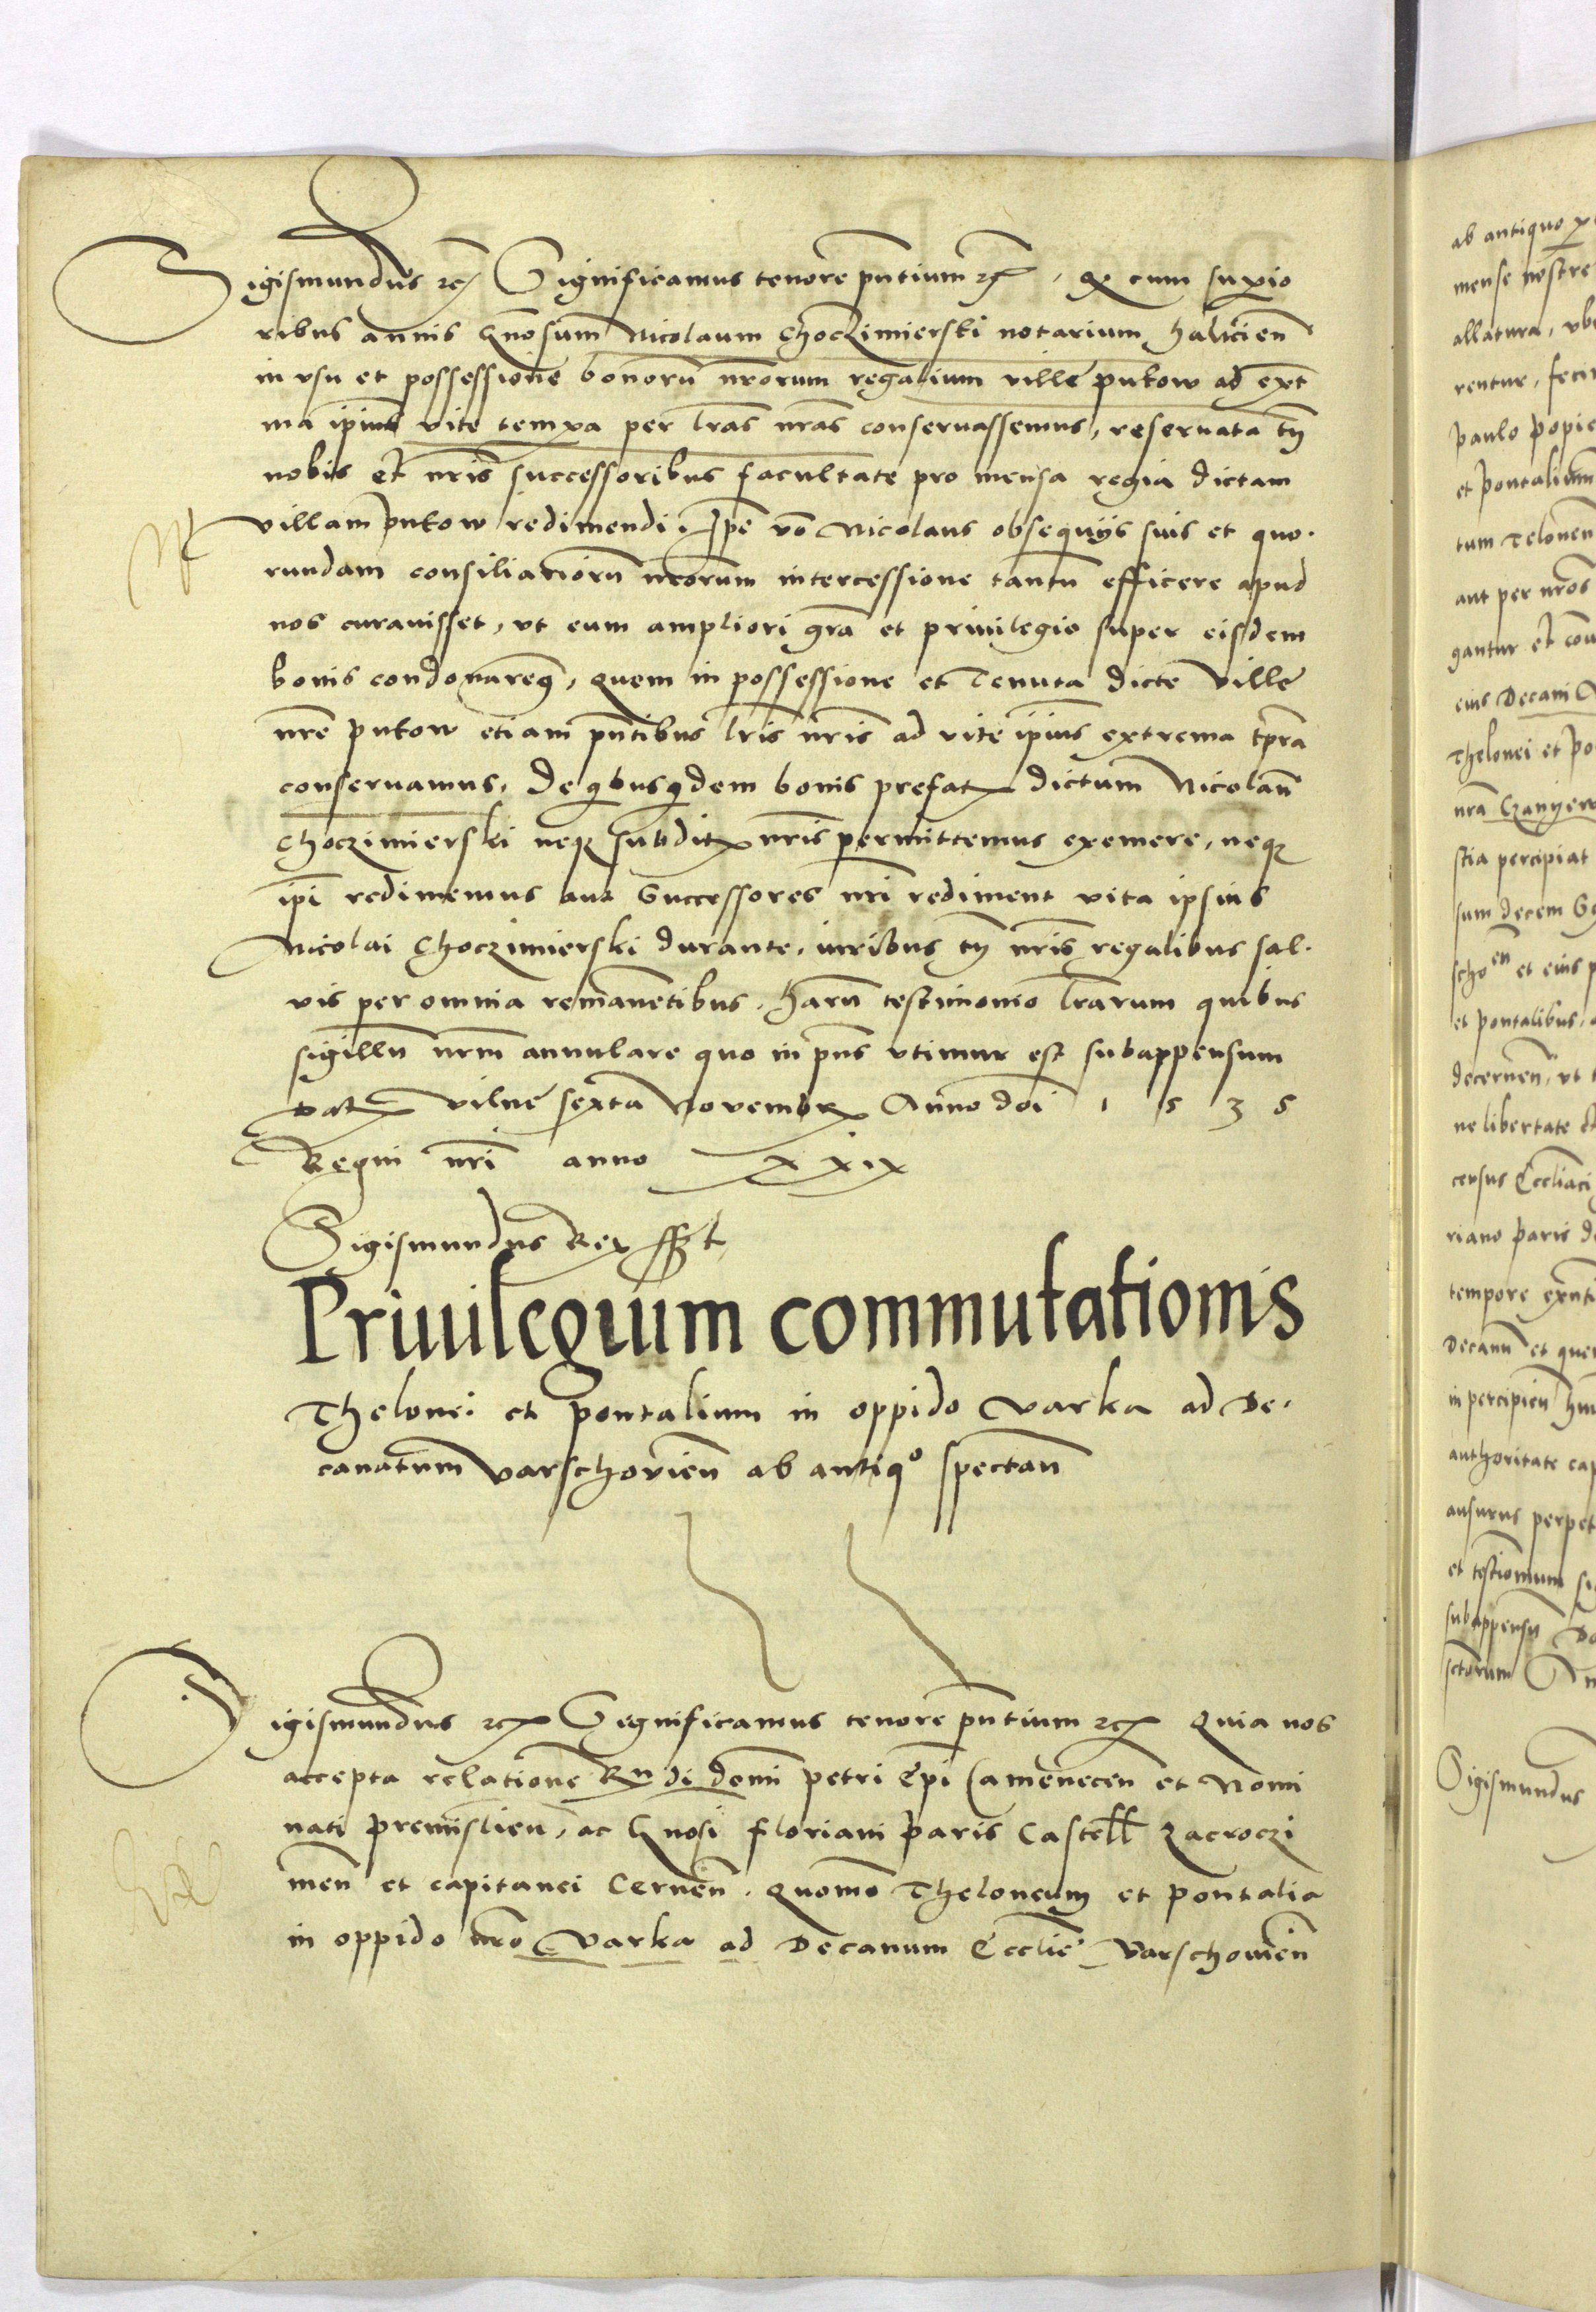 Sigismundus etc Significamus tenore pntium etc. Q cum supio
ribus annis Gnosum Nicolaum Choczimierski notarium halicien
in vsu et possessione bonoru nrorum regalium ville putow ad ext
ma ipius vite tempa per lras nras conseruassemus, reseruata tn
nobis et nris successoribus facultate pro mensa regia dictam
villam putow redimendi. Ipe vo Nicolaus obsequijs suis et quo.
rundam consiliarioru nrorum intercessione tantu efficere apud
nos curauisset, vt eum ampliori gra et priuilegio super eisdem
bonis condonareq, quem in possessione et Tenuta dicte ville
nre putow etiam pntibus lris nris ad vite ipius extrema tpra
conseruamus, de qbusqdem bonis prefat dictum Nicolau
Choczimierski neq subdit nris permittemus exemere, neq
ipi redimemus aut Successores nri rediment vita ipsius
Nicolai Choczimierski durante, iuribus tn nris regalibus sal.
vis per omnia remanentibus. haru testimonio lrarum quibus
sigillu nrm annulare quo in pns vtimur est subappensum
Dat vilne sexta Nouembr Anno doi 1535
Regni nri anno XXIX
Sigismundus Rex sspt
Priuilegium commutationis
Thelonei et pontalium in oppido Varka ad De.
canatum varschouien ab antiqo spectan
Sigismundus etc Significamus tenore pntium etc Quia nos
accepta relatione Rndi domi petri Epi Camenecen et Nomi
nati premislien, ac Gnosi floriani paris Castell Zacroczi
men et capitanei Cernen. Quomo Theloneum et pontalia
in oppido nro Varka ad Decanum Ecclie Varschouien
ab antiquo
mense nostre
allatura, vb
rentur, feci
paulo popie
et pontalium
tum Telonen
aut per nros
gantur et con
eius Decani
Thelonei et po
nra Czanyew
stia percipiat
sum decem
scho en et eius p
et pontalibus,
decernen, vt
ne libertate
census Ecclia
riano paris d
tempore exnt
Decanu et que
in percipien
authoritate cap
ansurus perpet
et testiomum
subappensu
sctorum
Sigismundus